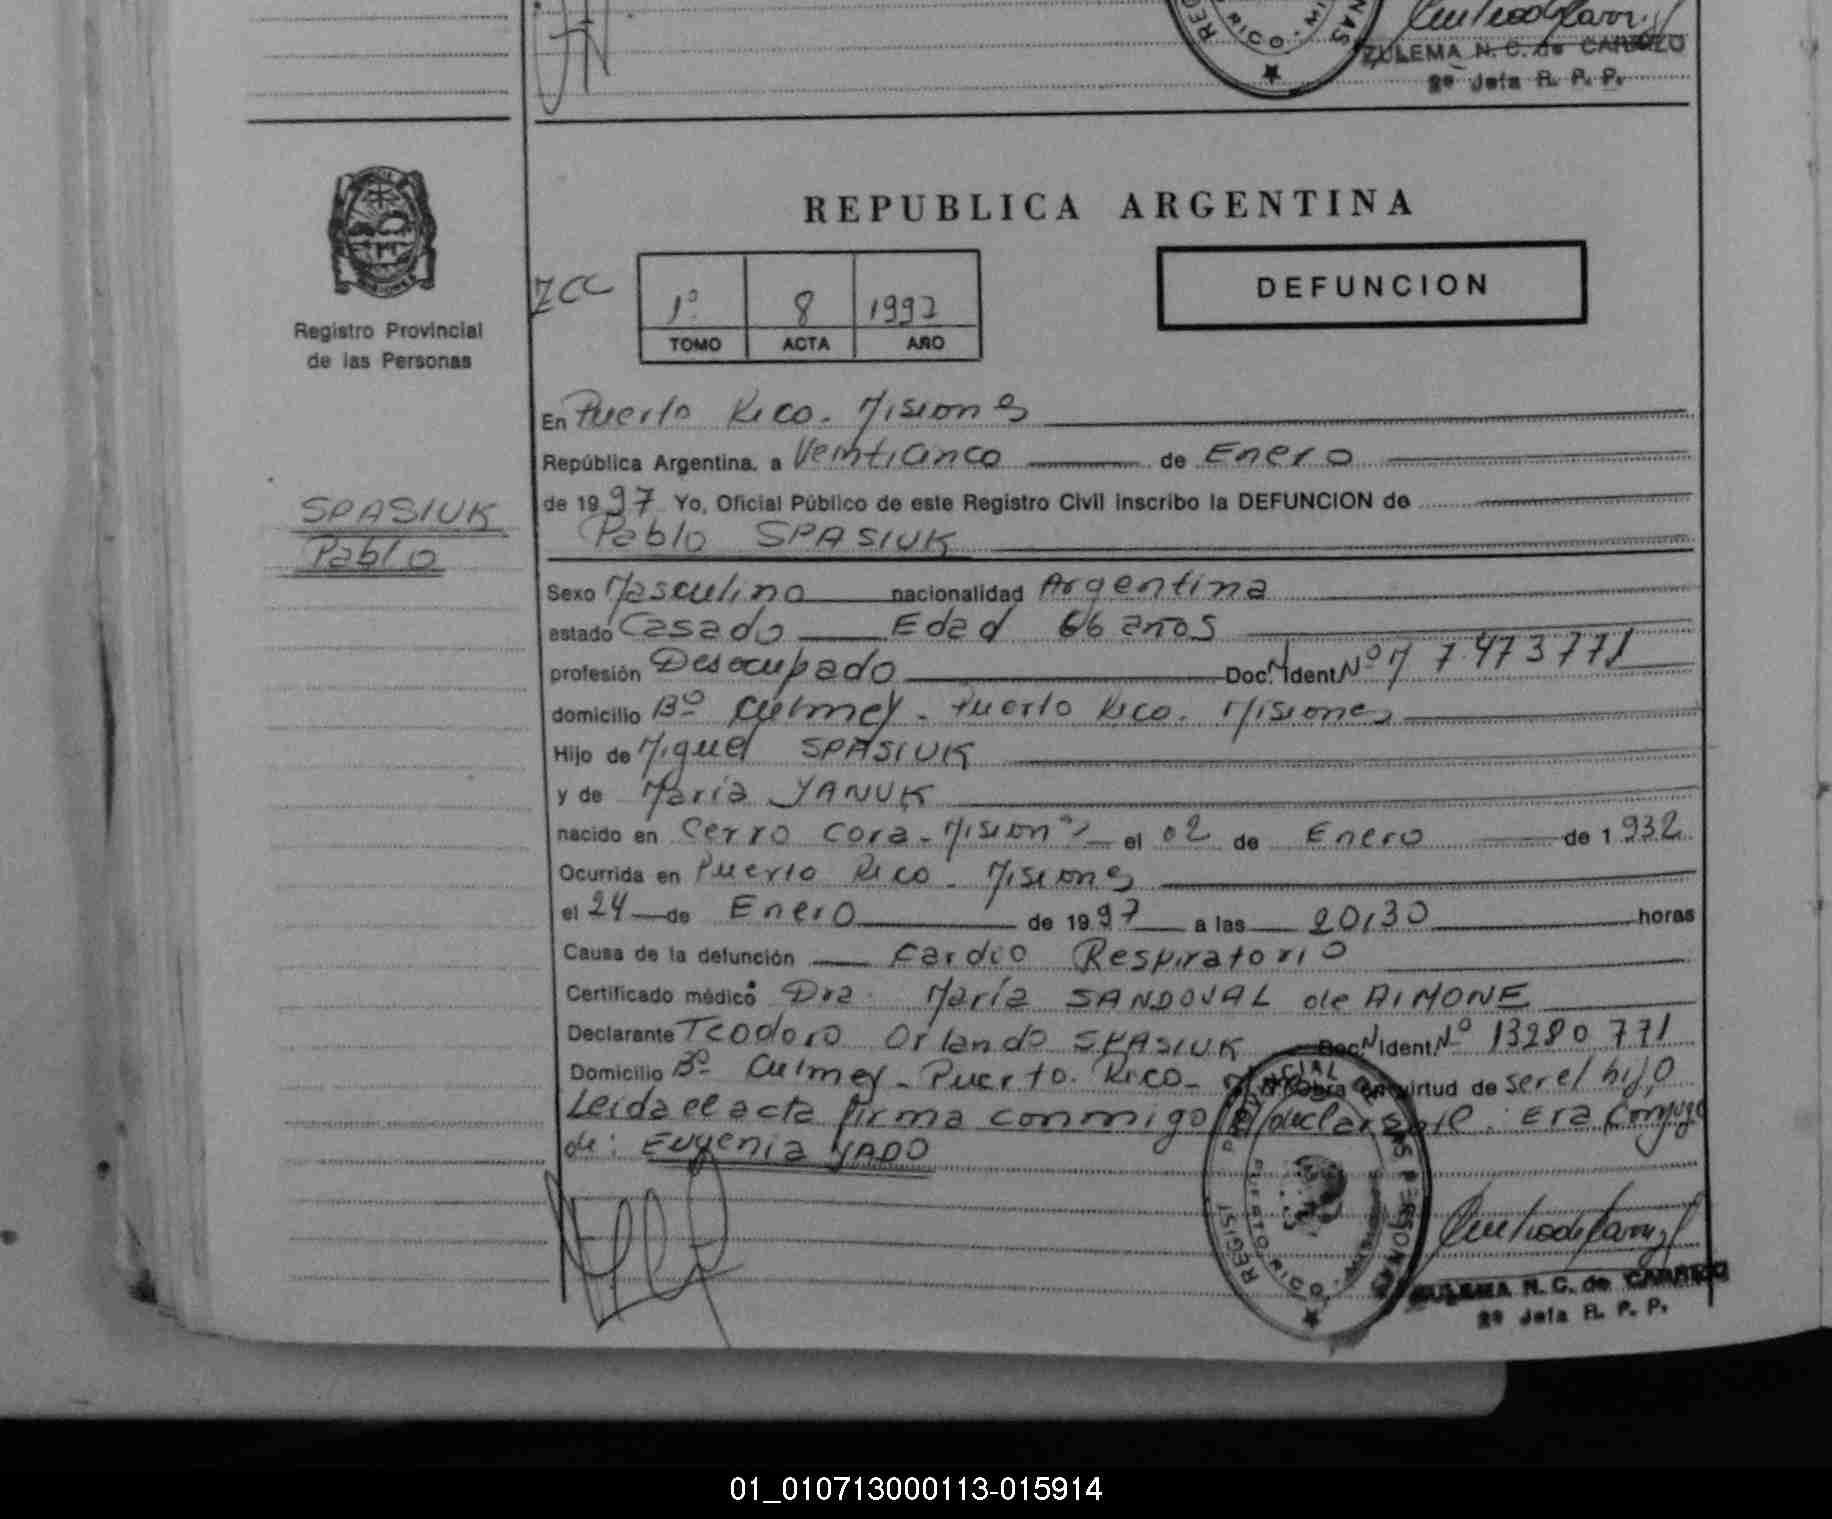 REGI RICO. MI NAS
ZULEMA N. C. de CARRIZO
2º Jefa R. P. P.
REPUBLICA ARGENTINA
DEFUNCION
ZCC
1º 8 1997
TOMO ACTA AÑO
Registro Provincial
de las Personas
En Puerto Rico. Misiones
República Argentina, a Veinticinco de Enero
de 1997 Yo, Oficial Público de este Registro Civil inscribo la DEFUNCION de
SPASIUK
Pablo
Pablo SPASIUK
Sexo Masculino nacionalidad Argentina
estado Casado Edad 66 años
profesión Desocupado Doc. Ident. Nº M 7.473771
domicilio Bº Culmey - Puerto Rico. Misiones
Hijo de Miguel SPASIUK
y de María YANUK
nacido en Cerro Cora - Misiones el 02 de Enero de 1932
Ocurrida en Puerto Rico - Misiones
el 24 de Enero de 1997 a las 20,30 horas
Causa de la defunción Cardio Respiratorio
Certificado médico Dra. María SANDOVAL de AIMONE
Declarante Teodoro Orlando SPASIUK Doc. N Ident. Nº 13280771
Domicilio Bº Culmey - Puerto. Rico - Obra en virtud de ser el hijo
Leida el acta firma conmigo el declarante. Era Conyuge
de: Eugenia YADO
REGIST PROVINCIAL DE LAS PERSONAS
PUERTO RICO
ZULEMA N. C. de CARRIZO
2º Jefa R. P. P.
01_010713000113-015914